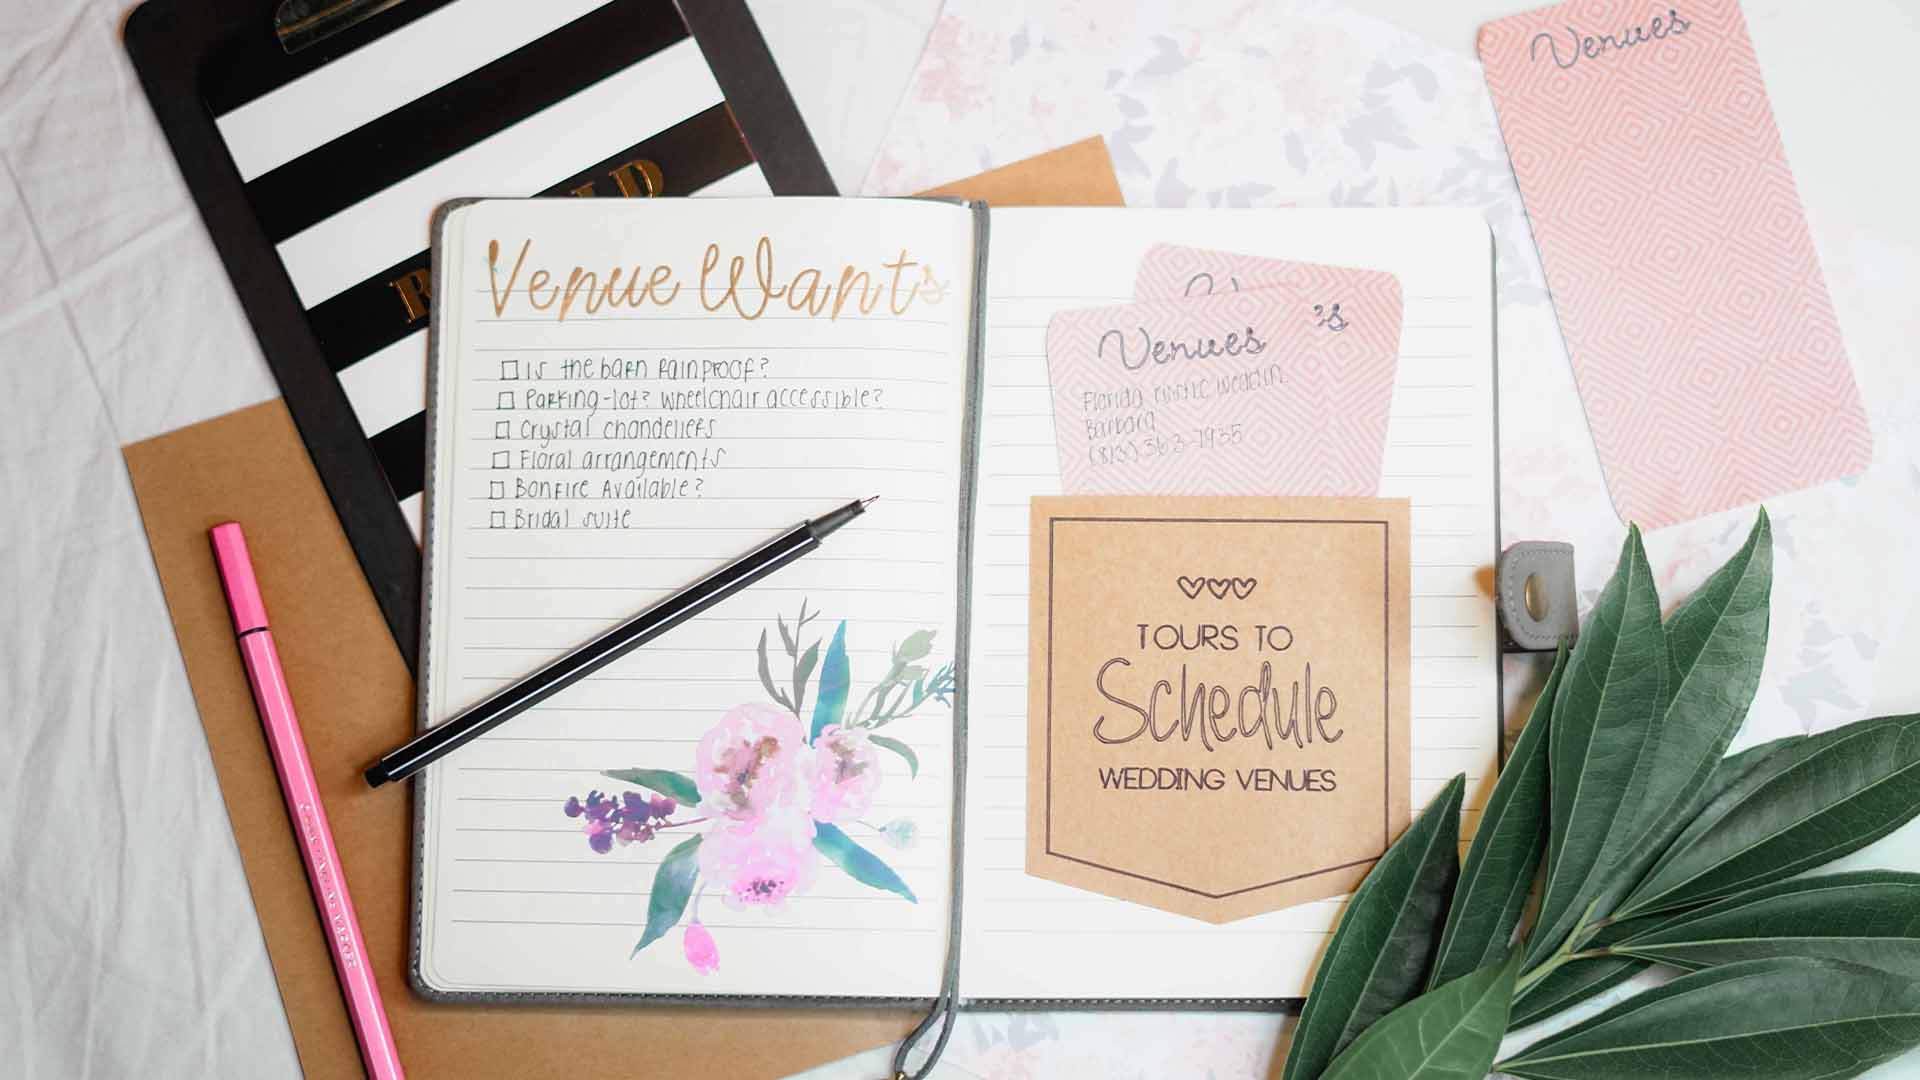 Venue Wants
Is the barn rainproof?
Parking-lot? wheelchair accessible?
Crystal chandeliers
Floral arrangements
Bonfire Available?
Bridal suite
Venues
's
Florida rustic weddin
Barbara
(813) 363-7935
TOURS TO
Schedule
WEDDING VENUES
Venues